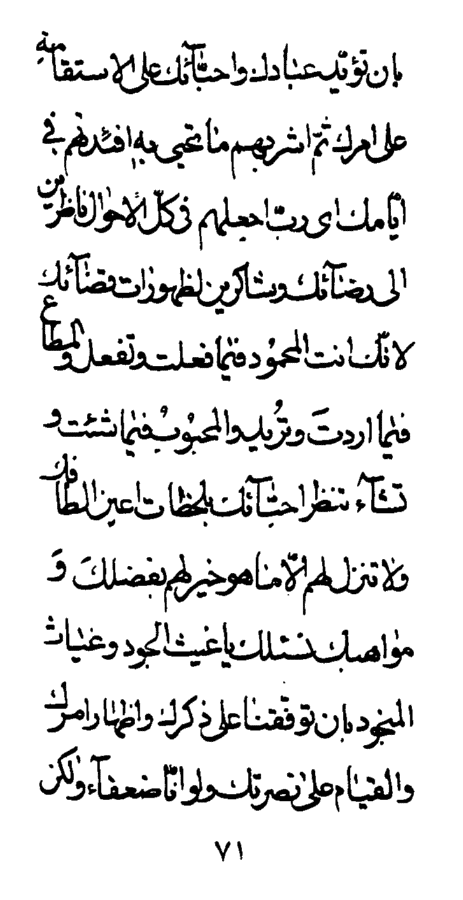 بان تؤیّد عبادك و احبّائك علی الاستقامة
علی امرك ثمّ اشربهم ما تحیی به افئدتهم فی
ایّامك ای ربّ اجعلهم فی كلّ الاحوال ناظرین
الی رضائك و شاكرین لظهورات قضائك
لانّك انت المحمود فیما فعلت و تفعل و المطاع
فیما اردتَ و تُرید و المحبوبُ فیما شئت و
تشآء تنظر احبّائك بلحظات اعین الطافك
و لا تنزل لهم الّا ما هو خیر لهم بفضلكَ وَ
مواهبك نسئلك یا غیث الجود و غیاث
المنجود بان توفّقنا علی ذكرك و اظهار امرك
و القیام علی نصرتك و لو انّا ضعفآء ولكن
٧١